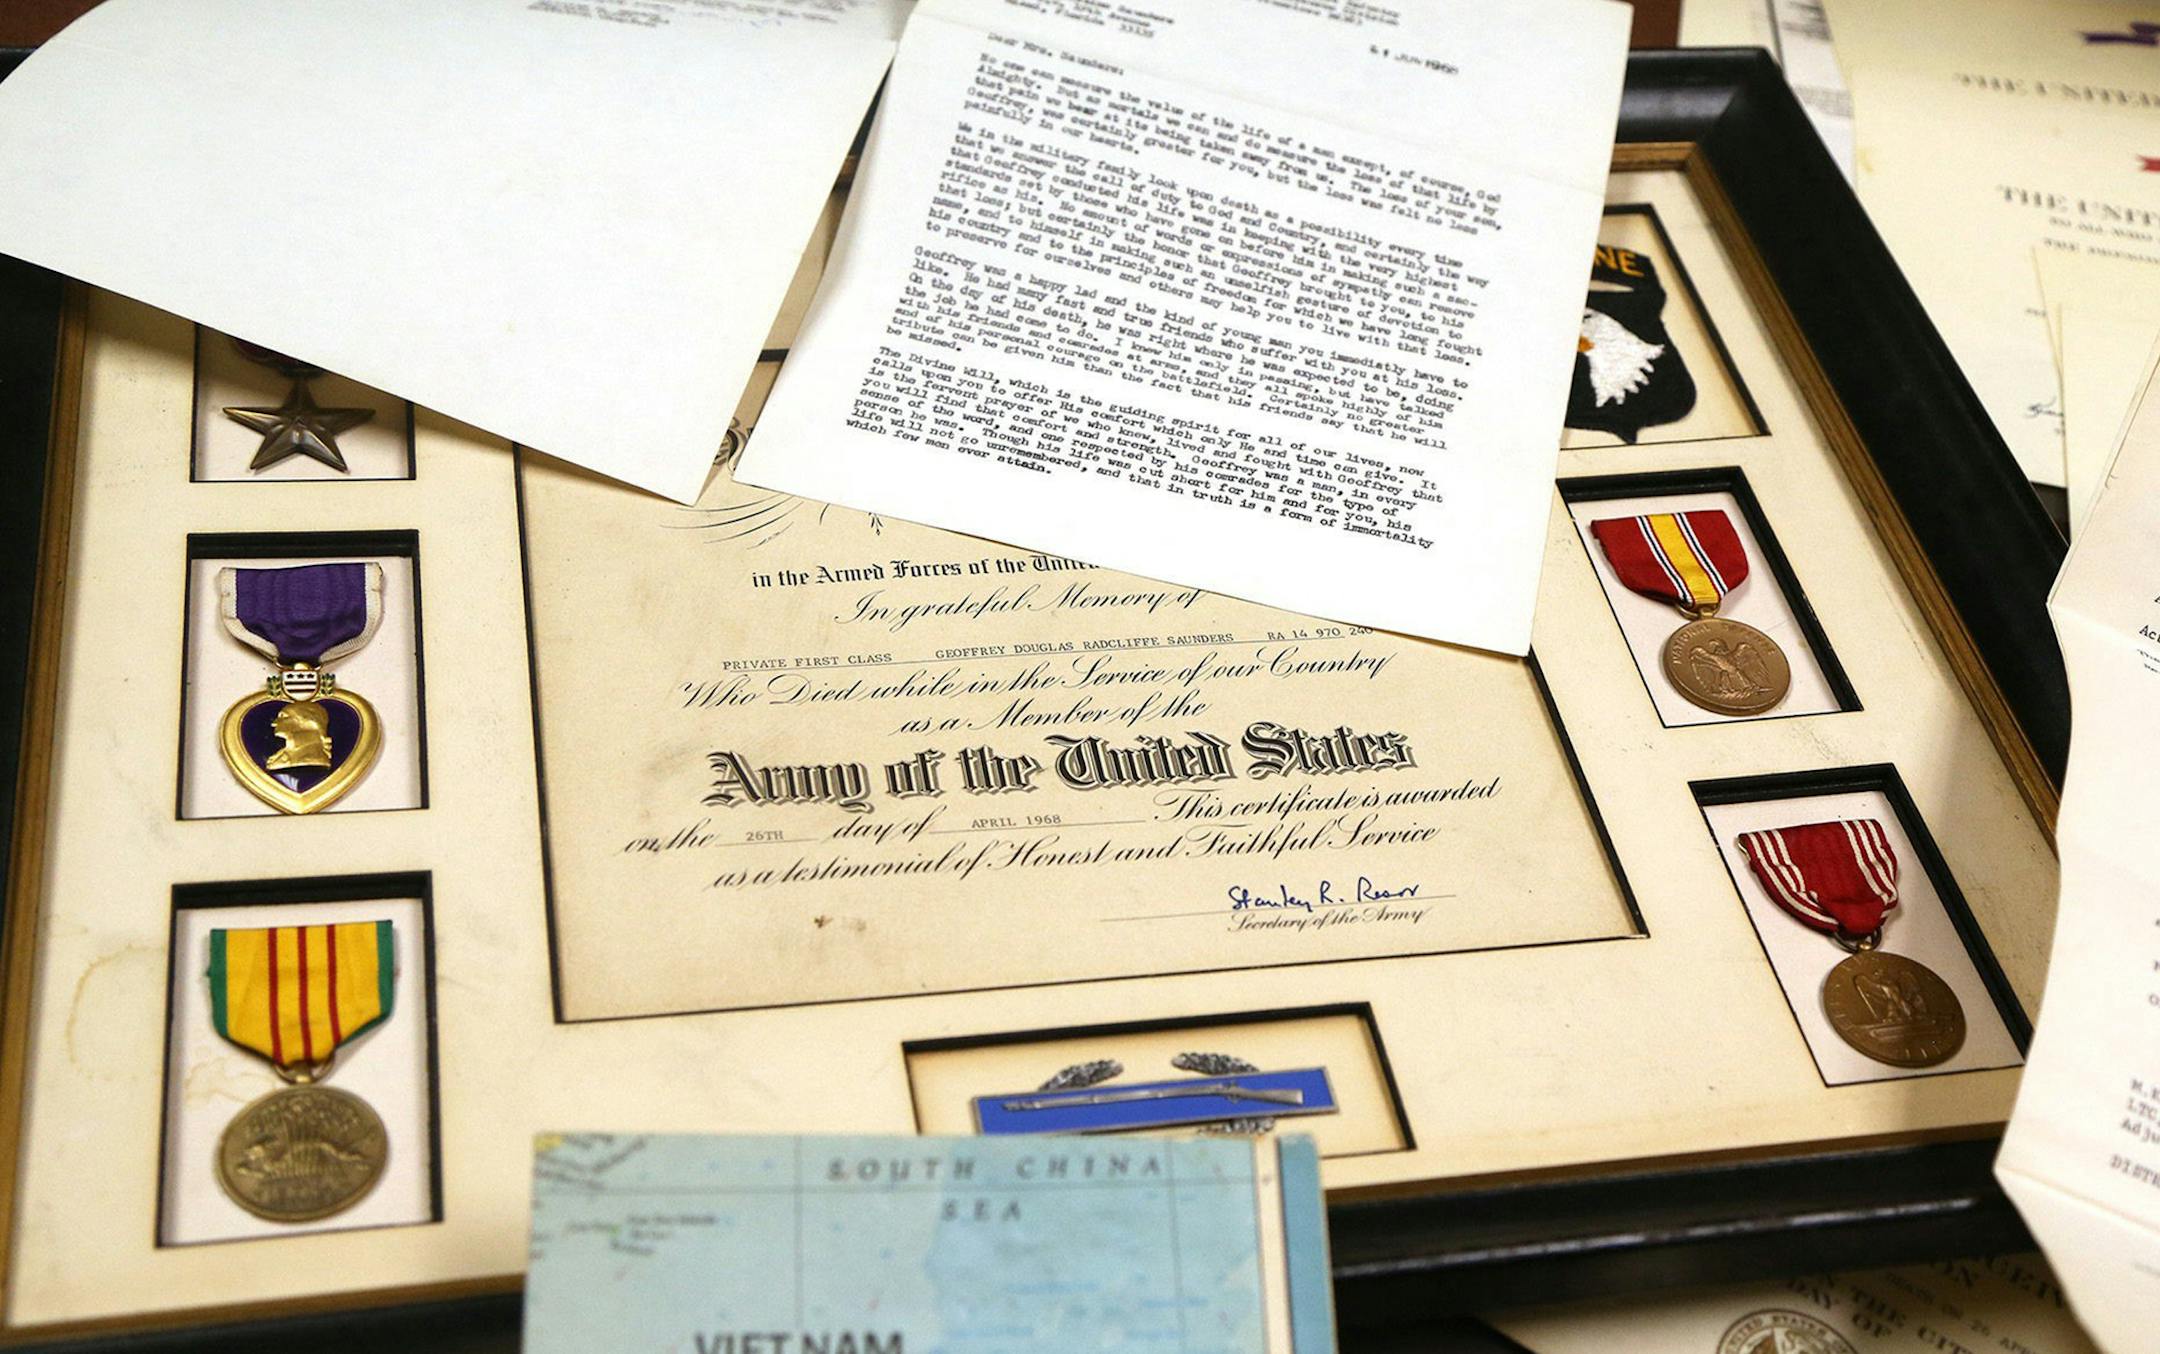 Miami, Florida
33135
Dear Mrs. Saunders:
No one can measure the value of the life of a man except, of course, God
Almighty. But as mortals we can and do measure the loss of that life by
that pain we bear at its being taken away from us. The loss of your son,
Geoffrey, was certainly greater for you, but the loss was felt no less
painfully in our hearts.
We in the military family look upon death as a possibility every time
that we answer the call of duty to God and Country, and certainly the way
that Geoffrey conducted his life was in keeping with the very highest
standards set by those who have gone on before him in making such a sac-
rifice as his. No amount of words or expressions of sympathy can remove
that loss; but certainly the honor that Geoffrey brought to you, to his
name, and to himself in making such an unselfish gesture of devotion to
his country and to the principles of freedom for which we have long fought
to preserve for ourselves and others may help you to live with that loss.
Geoffrey was a happy lad and the kind of young man you immediately have to
like. He had many fast and true friends who suffer with you at his loss.
On the day of his death, he was right where he was expected to be, doing
the job he had come to do. I knew him only in passing, but have talked
with his friends and comrades at arms, and they all spoke highly of him
and of his personal courage on the battlefield. Certainly no greater
tribute can be given him than the fact that his friends say that he will
missed.
The Divine Will, which is the guiding spirit for all of our lives, now
calls upon you to offer His comfort which only He and time can give. It
is the fervent prayer of we who knew, lived and fought with Geoffrey that
you will find that comfort and strength. Geoffrey was a man, in every
sense of the word, and one respected by his comrades for the type of
person he was. Though his life was cut short for him and for you, his
life will not go unremembered, and that in truth is a form of immortality
which few men ever attain.
in the Armed Forces of the
In grateful Memory of
PRIVATE FIRST CLASS GEOFFREY DOUGLAS RADCLIFFE SAUNDERS RA 14 970 240
Who Died while in the Service of our Country
as a Member of the
Army of the United States
on the 26TH day of APRIL 1968 This certificate is awarded
as a testimonial of Honest and Faithful Service
Stanley R. Resor
Secretary of the Army
SOUTH CHINA
SEA
VIETNAM
NE
THE UNITED
THE UNIT
DAY OF